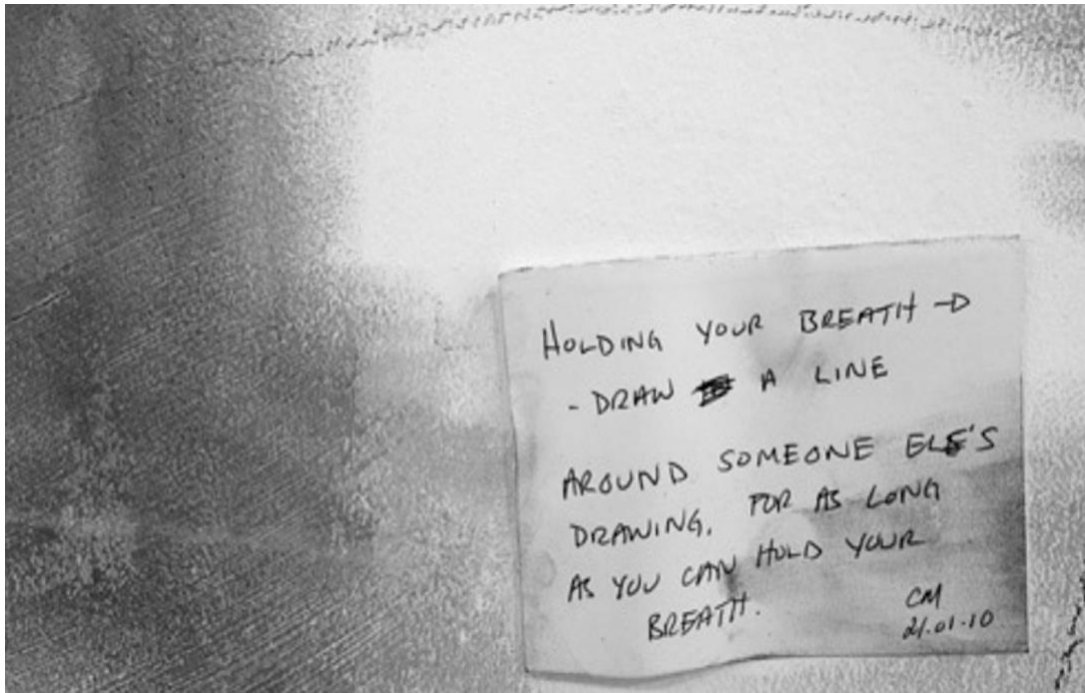 HOLDING YOUR BREATH →
- DRAW A LINE
AROUND SOMEONE ELSE'S
DRAWING. FOR AS LONG
AS YOU CAN HOLD YOUR
BREATH.
CM
21.01.10